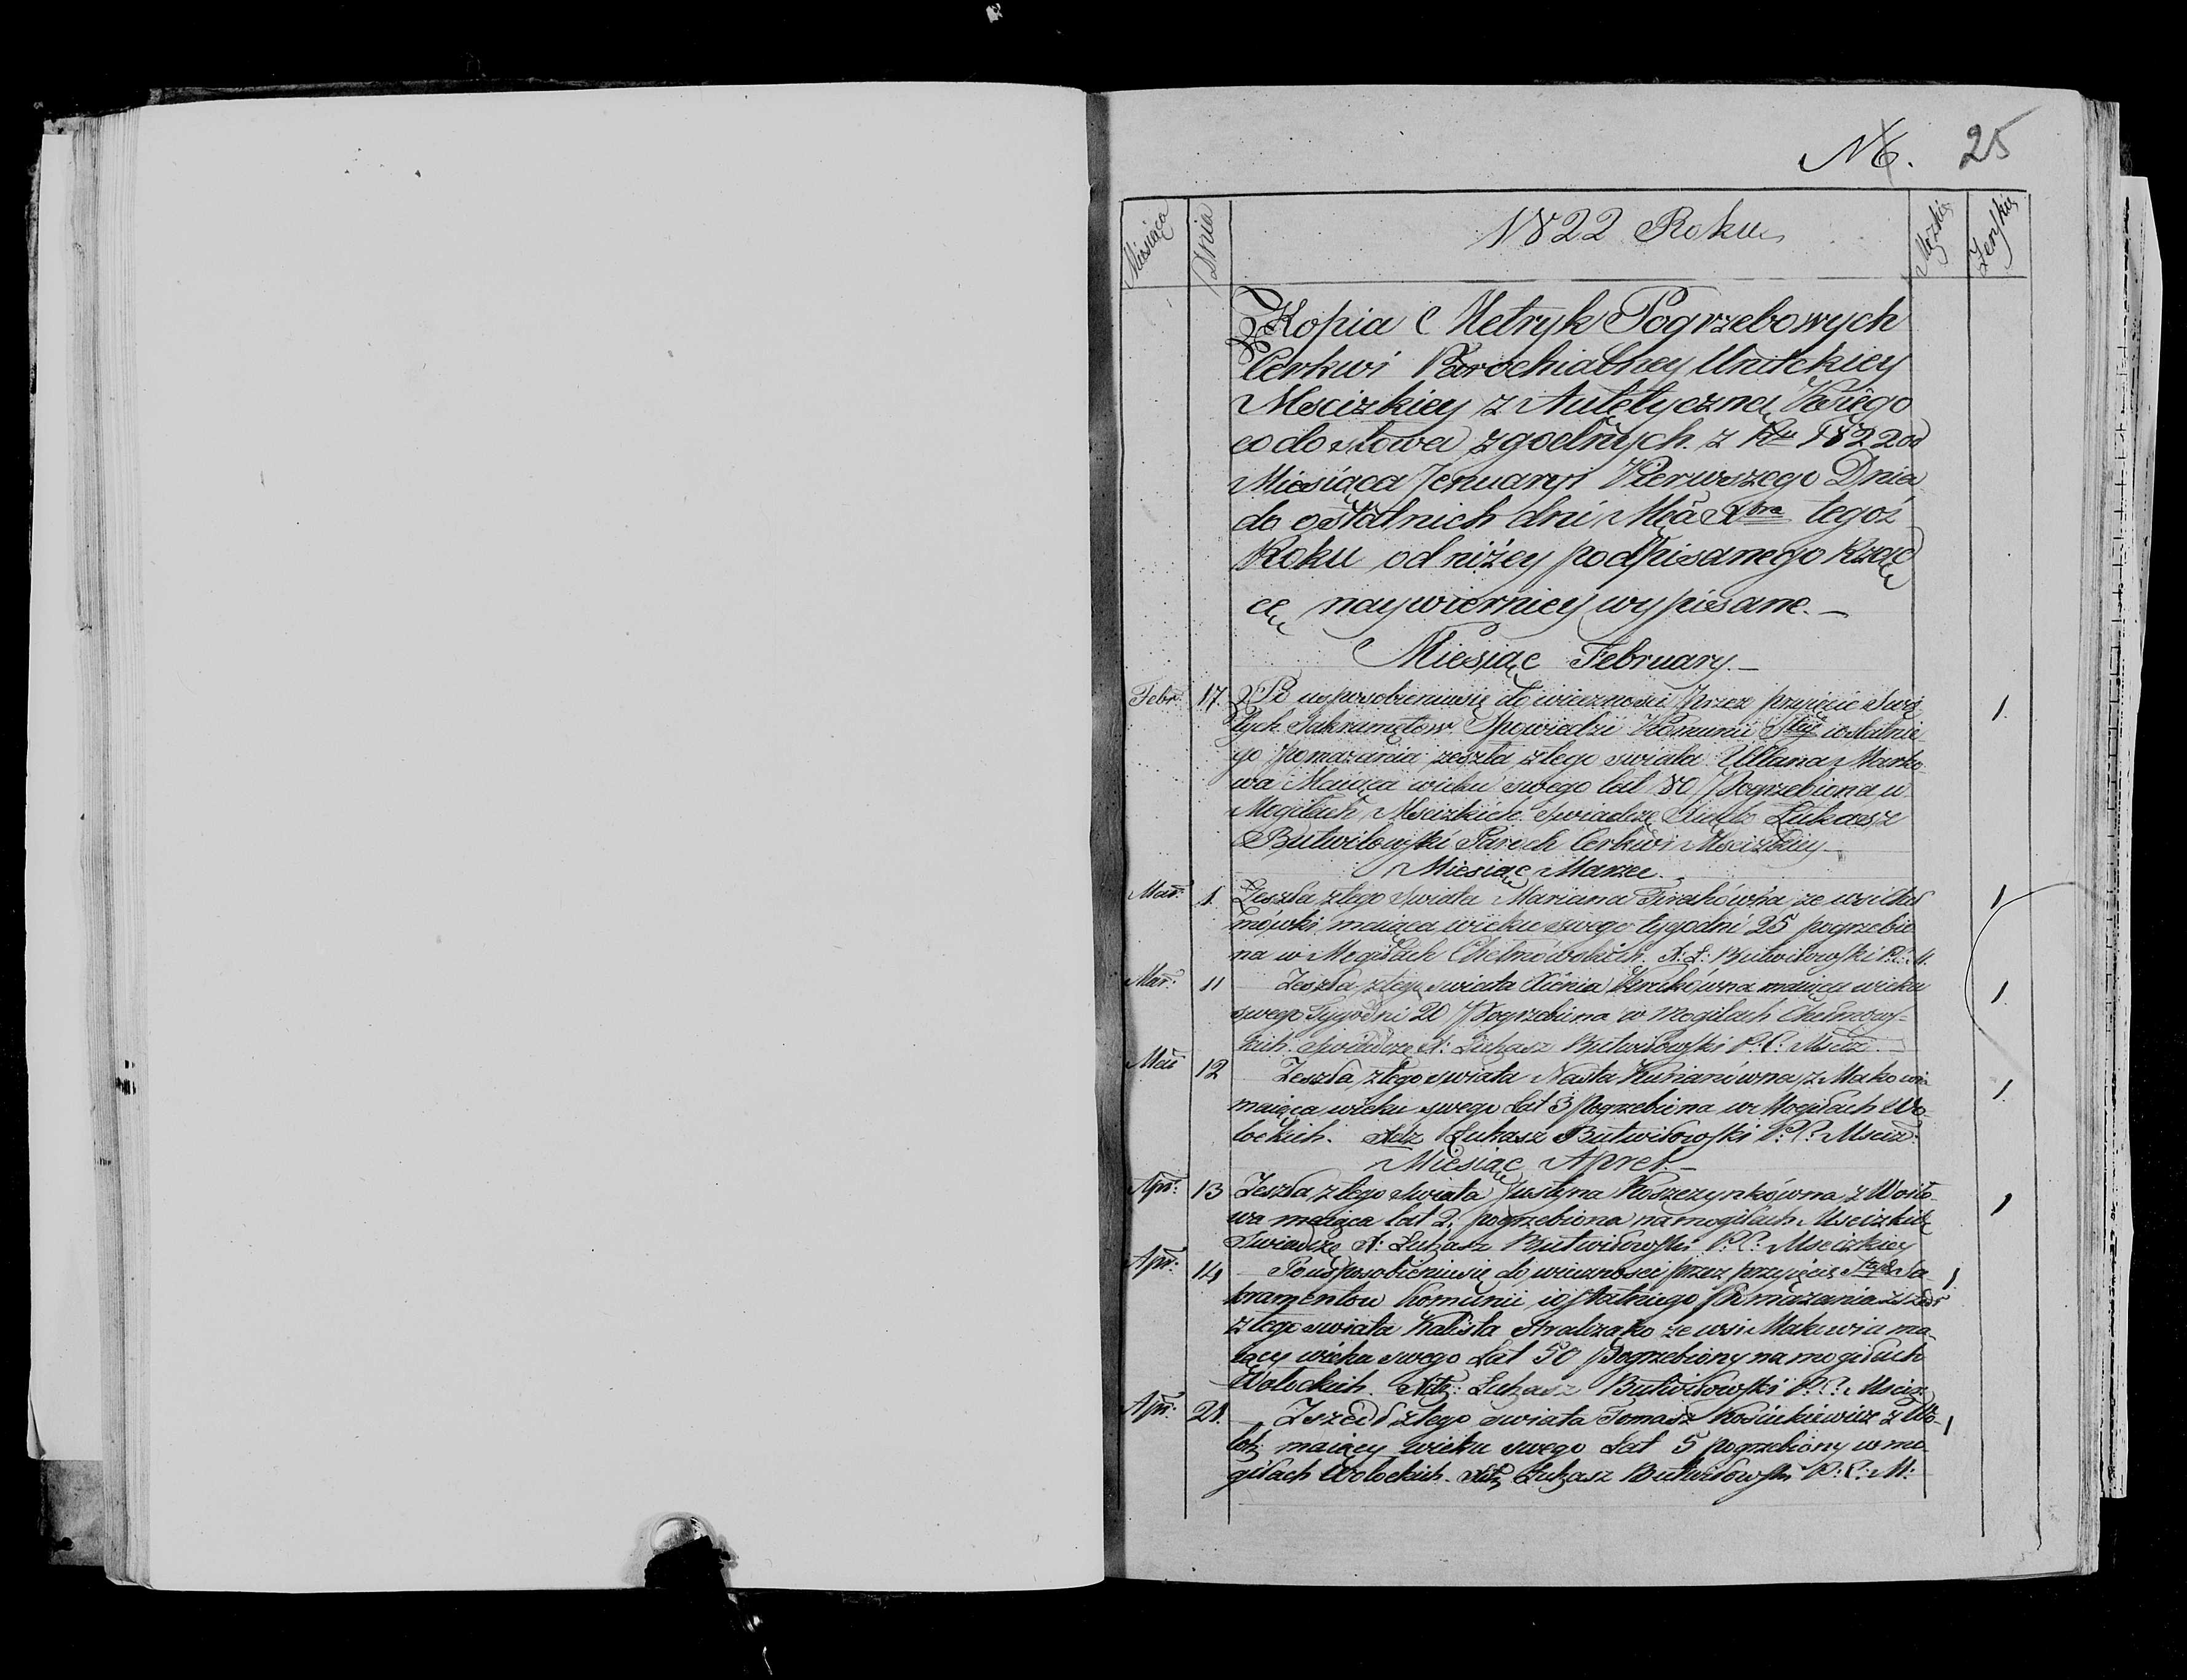 N 6. 25
Miesiąca Dnia 1822 Roku Męzkie Żeńskie
Kopia Metryk Pogrzebowych
Cerkwi Parochialney Unitckiey
Mscizkiey z Autętyczną Księgo
co do słowa zgodnych z Rku 1822 od
Miesiąca Jenuaryi Pierwszego Dnia
do ostatnich dni Mca Xbra tegoż
Roku od niżey podpisanego Rządc
cę naywierniey wypisane. —
Miesiąc February. —
Febr. 17. Po usposobieniusię do wieczności przez przyięcie Swię 1
tych Sakramętow Spowiedzi Komunii Stey i ostatnie
go pomazania zeszła z tego swiata Ullana Marko-
wa Maiąca wieku swego lat 80 Pogrzebiona w
Mogiłach Mscizkich Swiadczę Łukasz
Butwiłowski Paroch Cerkwi Mscizkiey
Miesiąc Marzec.
Mar. 1 Zeszła z tego Swiata Mariana ze wsi Cheł 1
mówki maiąca wieku swego tygodni 25 pogrzebio
na w Mogiłach Chełmówskich. X. Ł: Butwiłowski P. C. M.
Mar. 11 Zeszła z tego swiata Xienia maiąca wieku 1
swego Tygodni 20 Pogrzebiona w mogiłach Chełmows-
kich. Swiadczę X: Łukasz Butwiłowski P: C: Msciz
Mar 12 Zeszła z tego swiata Nasta z Makowia 1
maiąca wieku swego Lat 3 Pogrzebiona w Mogiłach Wo-
łockich. Xdz Łukasz Butwiłowski P: C: Msciz:
Miesiąc Aprel. —
Apr: 13 Zeszła z tego Swiata Justyna Koszczynkówna z Woiło- 1
wa maiąca lat 2. pogrzebiona na mogiłach Mscizkich
Swiadczę X: Łukasz Butwiłowski P: C: Mscizkiey
Apr: 14 Po usposobieniusię do wieczności przez przyięcie Stych Sa 1
kramentow Komunii i ostatniego Pomazania zszedł
z tego swiata Kalista ze wsi Makowia ma-
iący wieku swego Lat 50 Pogrzebiony na mogiłach
Wołockich. Xdz: Łukasz Butwiłowski P. C. Msciz.
Apr: 21. Zszedł z tego swiata Tomasz Kosciukiewicz z Wo- 1
łok maiący wieku swego Lat 5 pogrzebiony w mo
giłach Wołockich. Xdz Łukasz Butwiłowski P: C: M: